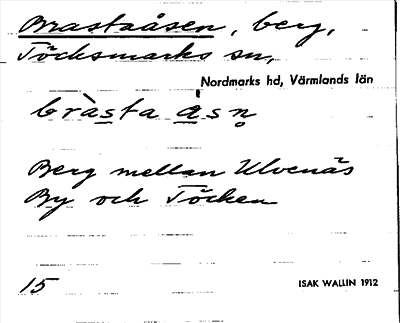 Brastaåsen, berg,
Töcksmarks sn,
Nordmarks hd, Värmlands län
bràsta a̍sn̥
Berg mellan Ulvenäs
By och Töcken
15
ISAK WALLIN 1912